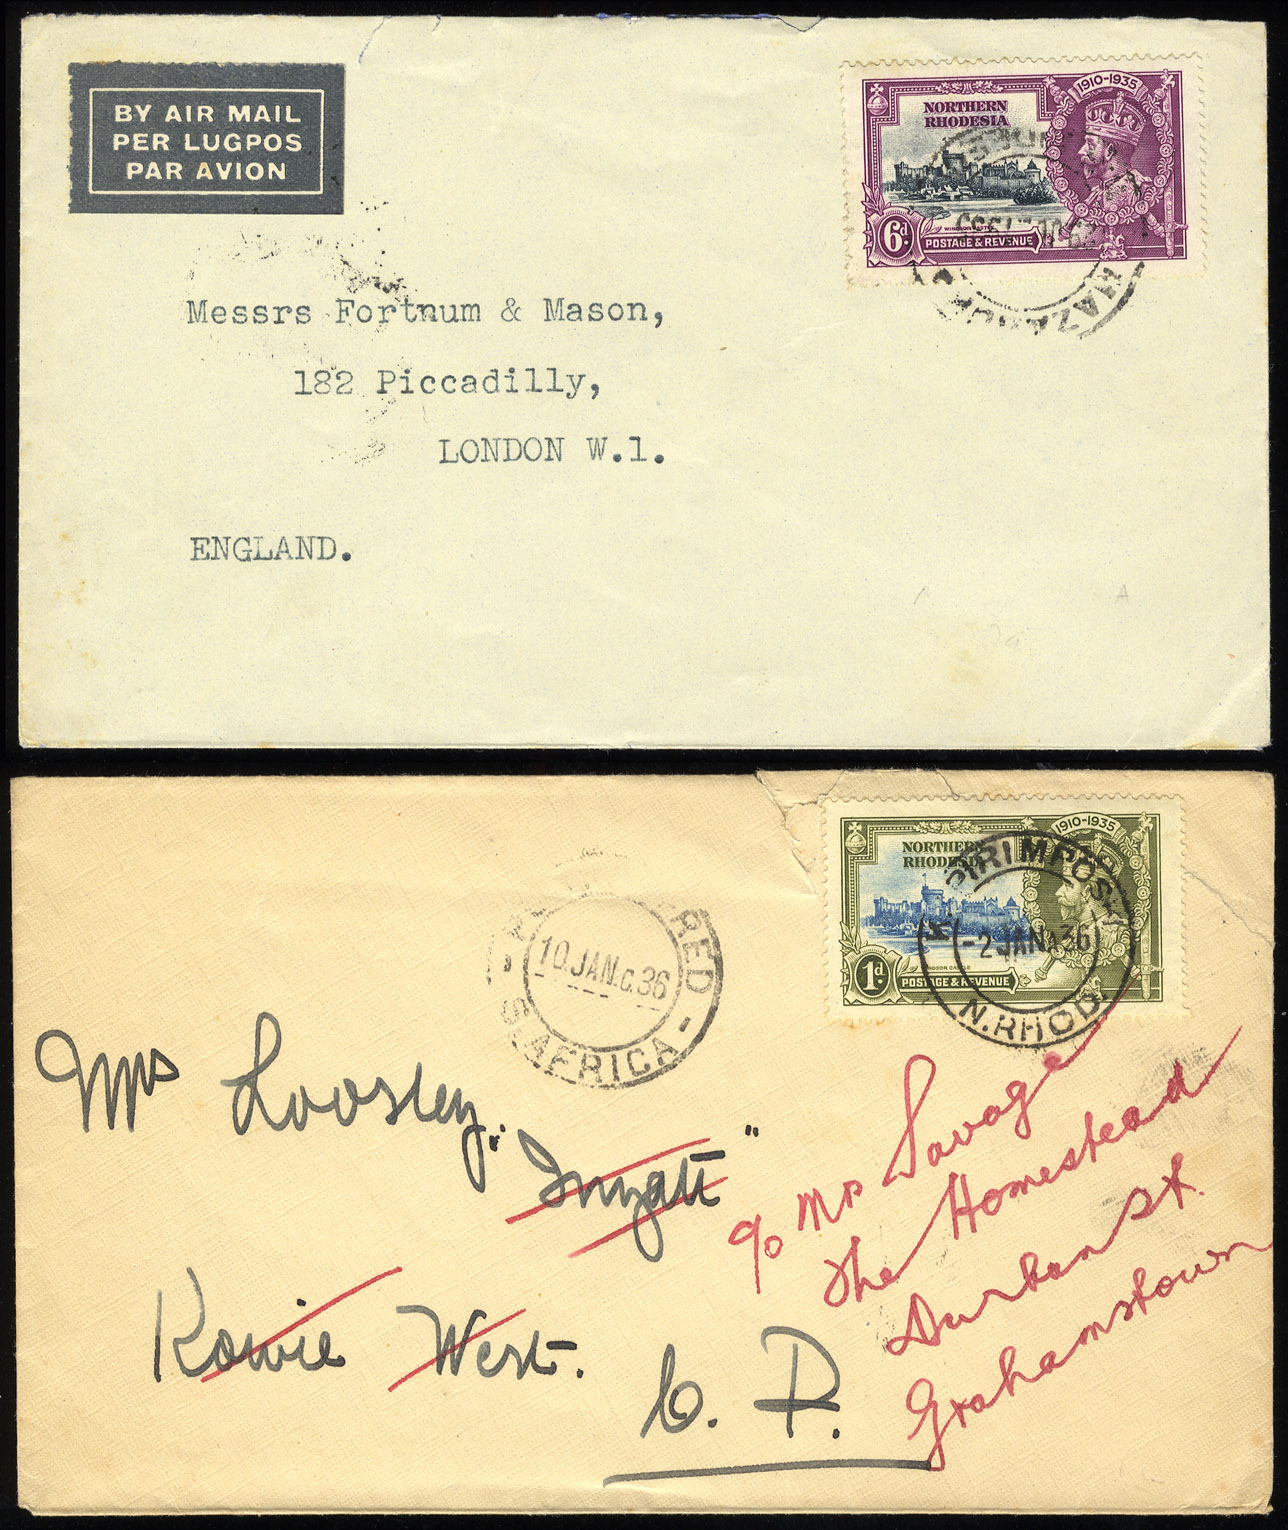 BY AIR MAIL
PER LUGPOS
PAR AVION
1910-1935
NORTHERN
RHODESIA
WINDSOR CASTLE
6d.
POSTAGE & REVENUE
Messrs Fortnum & Mason,
182 Piccadilly,
LONDON W.1.
ENGLAND.
1910-1935
NORTHERN
RHODESIA
WINDSOR CASTLE
1d.
POSTAGE & REVENUE
KAPIRI MPOSHI
-2 JAN 36
N. RHOD.
RED
10 JAN. C. 36
S. AFRICA
Mrs Loosley
Kowie West.
C. P.
c/o Mrs Savage
The Homestead
Durban St.
Grahamstown